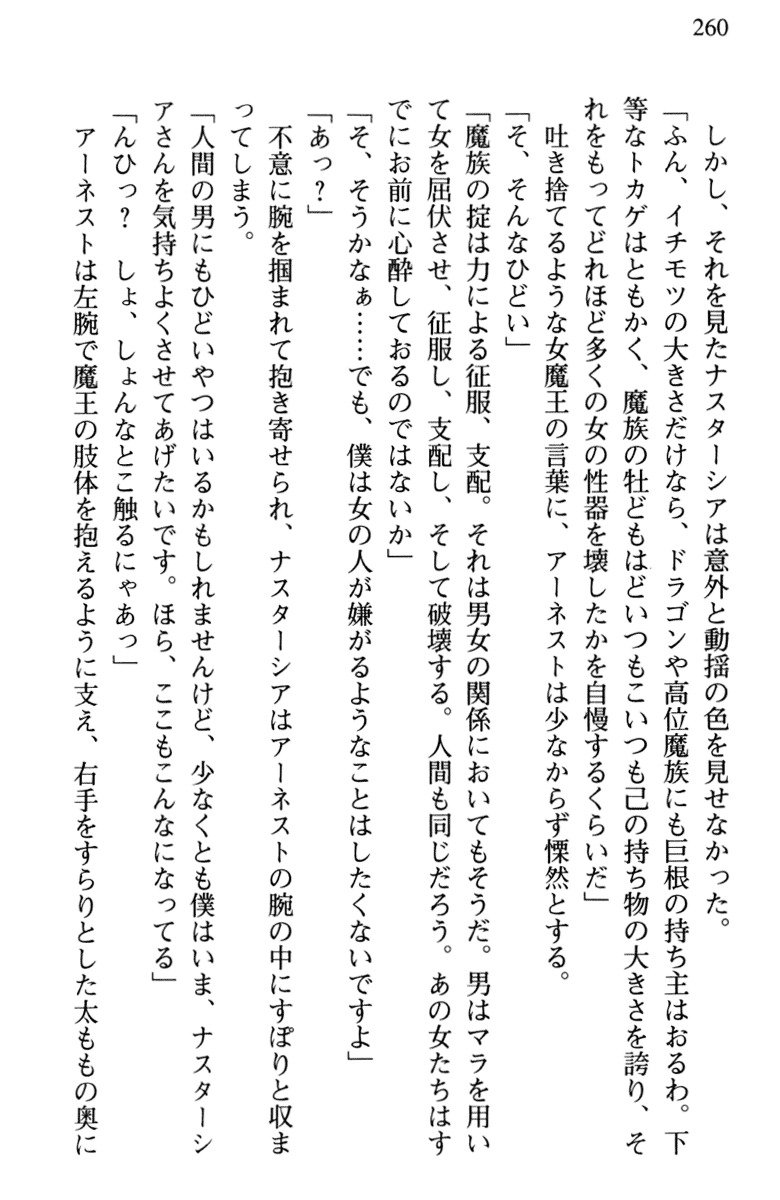 260
しかし、それを見たナスターシアは意外と動揺の色を見せなかった。
「ふん、イチモツの大きさだけなら、ドラゴンや高位魔族にも巨根の持ち主はおるわ。下
等なトカゲはともかく、魔族の牡どもはどいつもこいつも己の持ち物の大きさを誇り、そ
れをもってどれほど多くの女の性器を壊したかを自慢するくらいだ」
吐き捨てるような女魔王の言葉に、アーネストは少なからず慄然とする。
「そ、そんなひどい」
「魔族の掟は力による征服、支配。それは男女の関係においてもそうだ。男はマラを用い
て女を屈伏させ、征服し、支配し、そして破壊する。人間も同じだろう。あの女たちはす
でにお前に心酔しておるのではないか」
「そ、そうかなぁ……でも、僕は女の人が嫌がるようなことはしたくないですよ」
「あっ？」
不意に腕を掴まれて抱き寄せられ、ナスターシアはアーネストの腕の中にすぽりと収ま
ってしまう。
「人間の男にもひどいやつはいるかもしれませんけど、少なくとも僕はいま、ナスターシ
アさんを気持ちよくさせてあげたいです。ほら、ここもこんなになってる」
「んひっ？　しょ、しょんなとこ触るにゃあっ」
アーネストは左腕で魔王の肢体を抱えるように支え、右手をすらりとした太ももの奥に